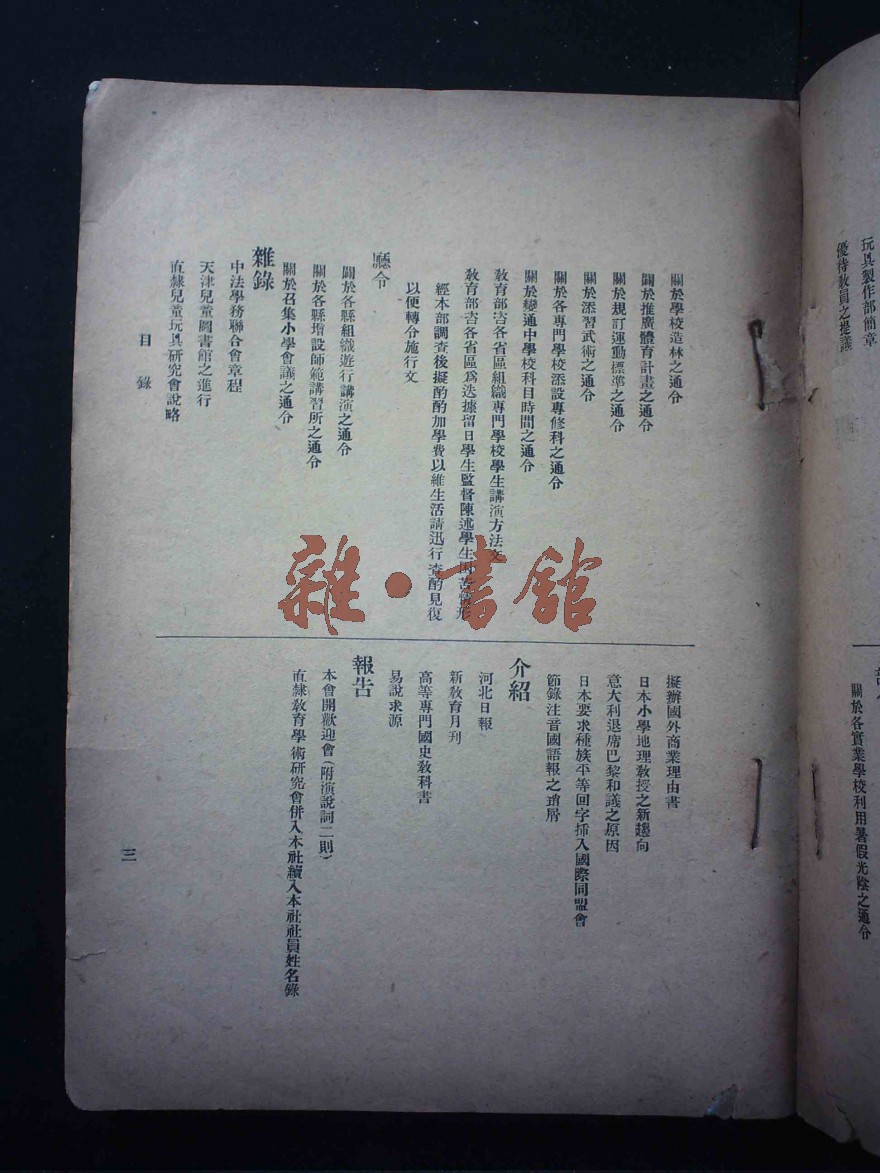 玩具製作部簡章
優待教員之提議
關於各實業學校利用暑假光陰之通令
關於學校造林之通令
關於推廣體育計畫之通令
關於規訂運動標準之通令
關於添習武術之通令
關於各專門學校添設專修科之通令
關於變通中學校科目時間之通令
教育部咨各省區組織專門學校學生講演方法文
教育部咨各省區爲迭據留日學生監督陳述學生困苦情形
經本部調查後擬酌酌加學費以維生活請迅行查酌見復
以便轉令施行文
廳令
關於各縣組織遊行講演之通令
關於各縣增設師範講習所之通令
關於召集小學會議之通令
雜錄
中法學務聯合會章程
天津兒童圖書館之進行
直隸兒童玩具研究會說略
擬辦國外商業理由書
日本小學地理教授之新趨向
意大利退席巴黎和議之原因
日本要求種族平等回字揷入國際同盟會
節錄注音國語報之瑣屑
介紹
河北日報
新教育月刊
高等專門國史教科書
易說求源
報告
本會開歡迎會(附演說詞二則)
直隸教育學術研究會併入本社續入本社社員姓名錄
目錄
三
雜·書館